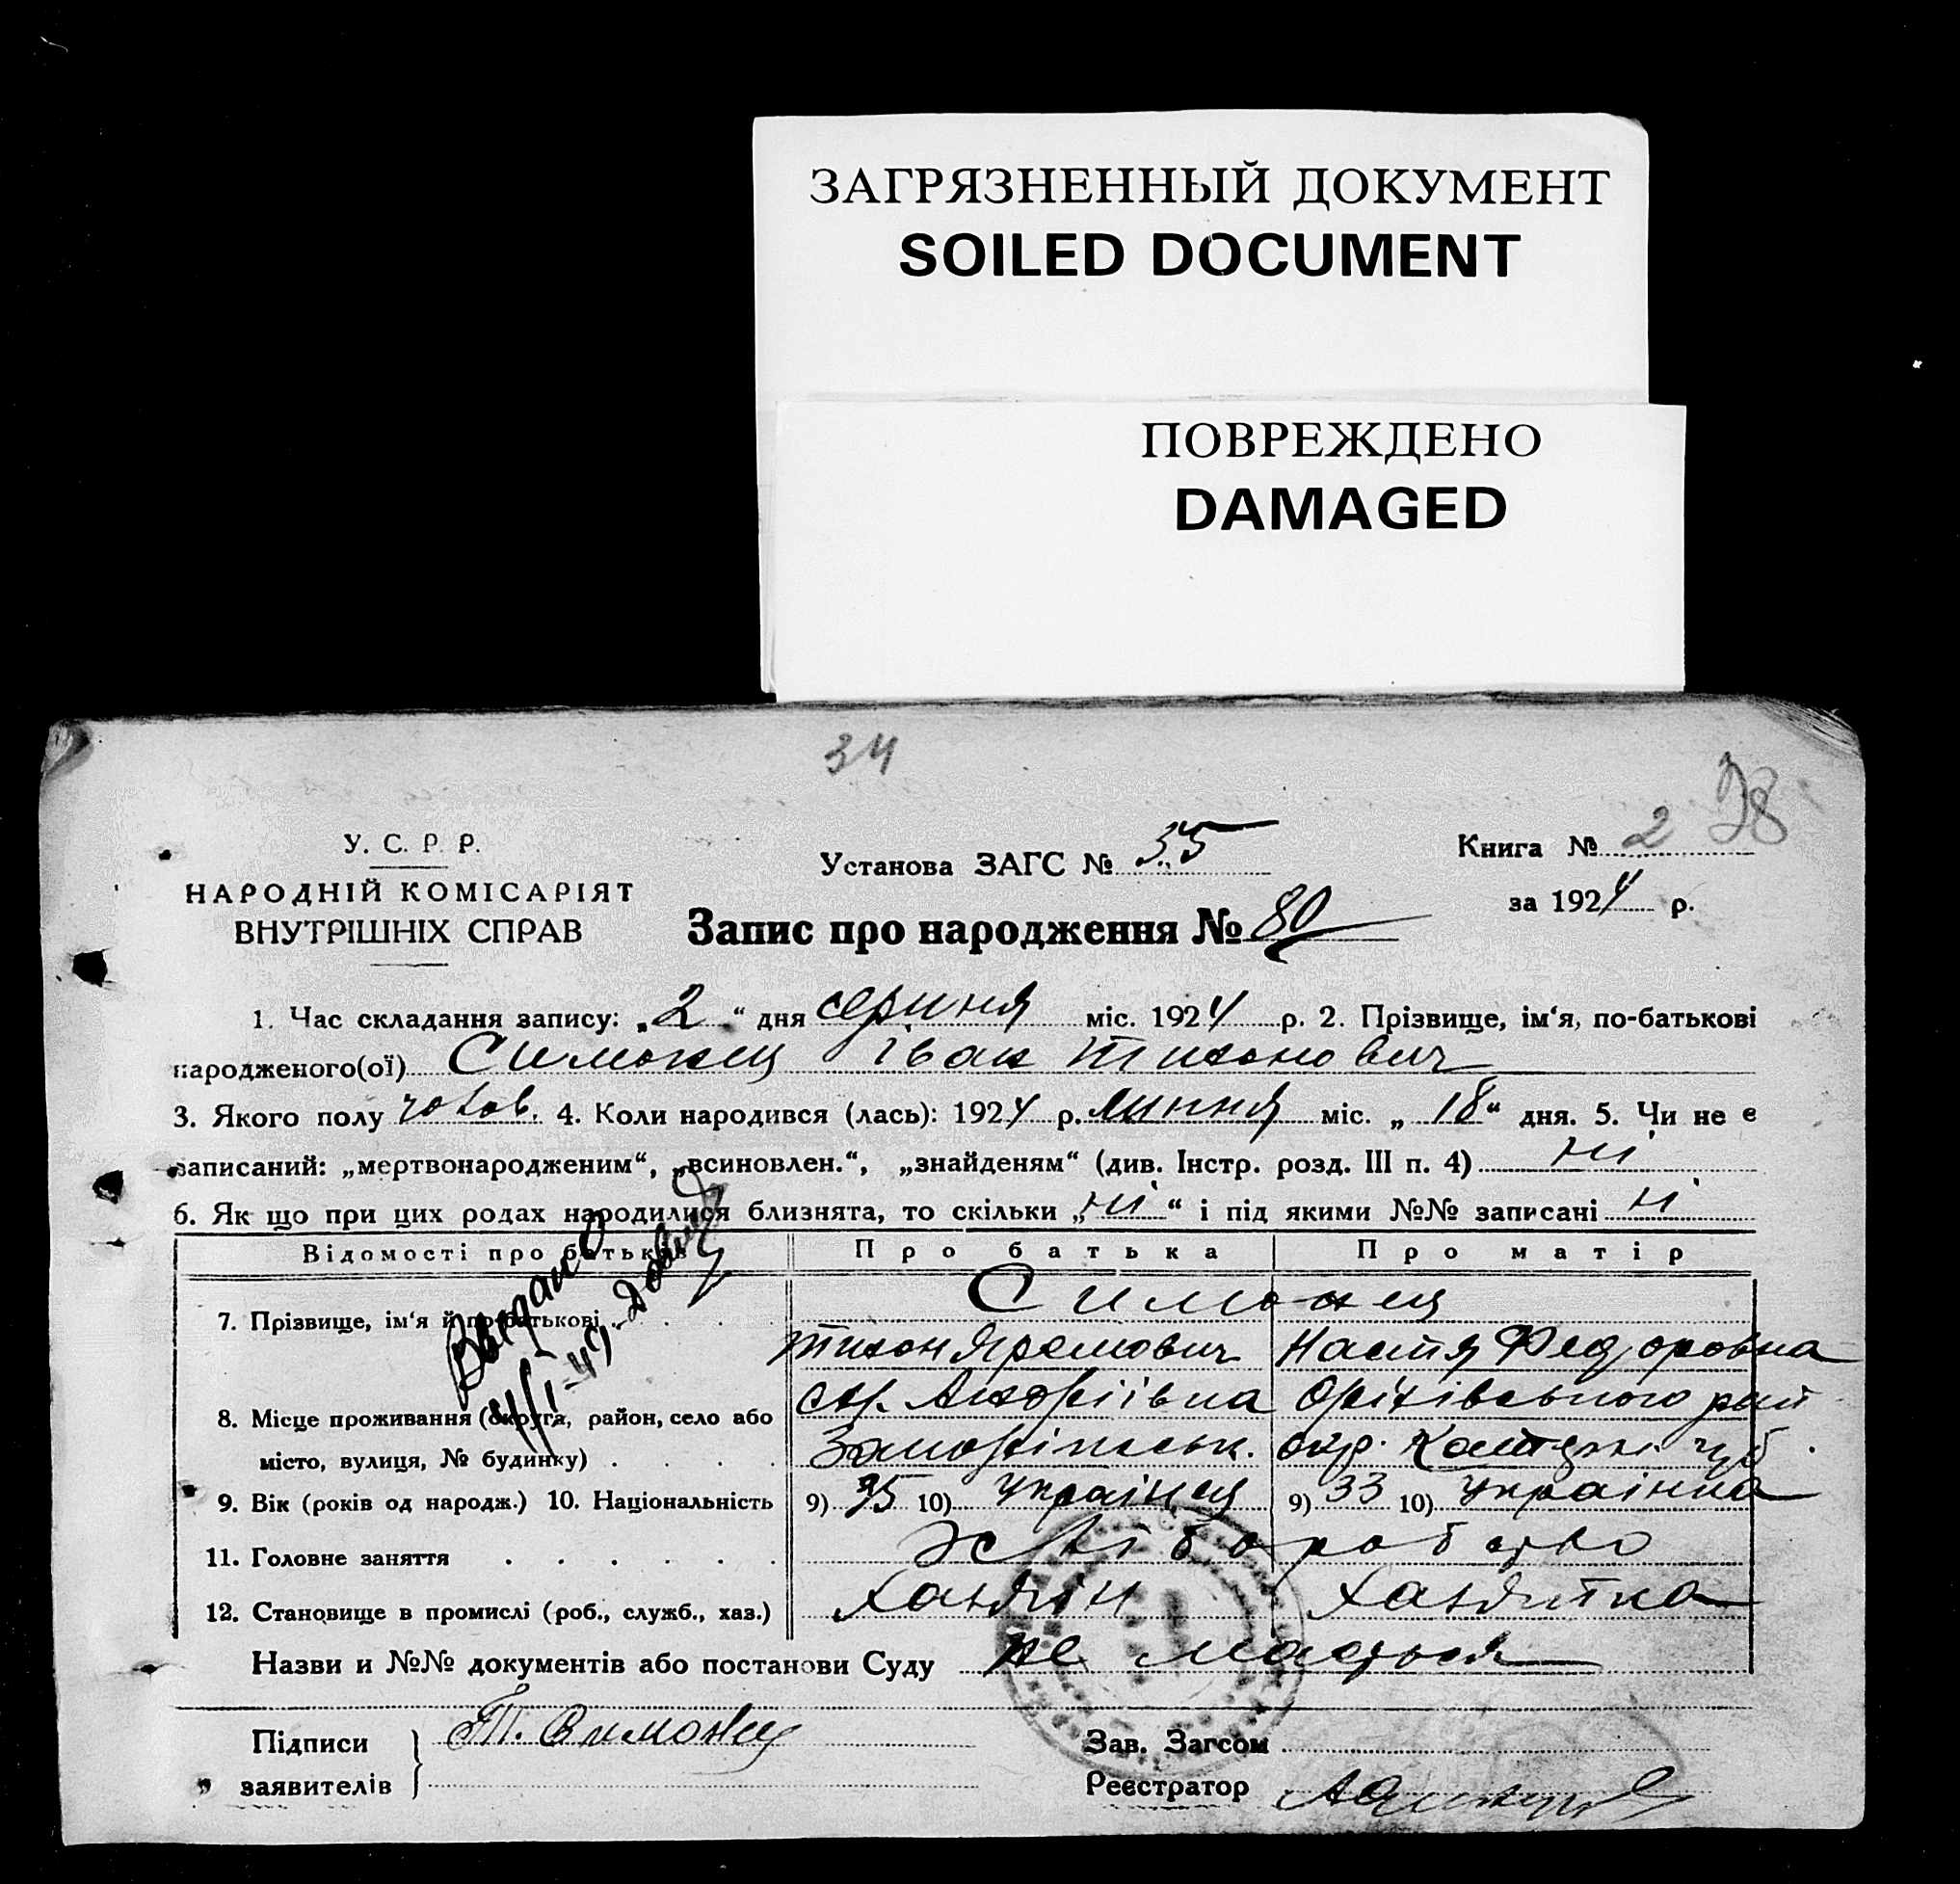 ЗАГРЯЗНЕННЫЙ ДОКУМЕНТ
SOILED DOCUMENT
ПОВРЕЖДЕНО
DAMAGED
34
98
У. С. Р. Р.
НАРОДНІЙ КОМІСАРІЯТ
ВНУТРІШНІХ СПРАВ
Установа ЗАГС № 35
Книга № 2
за 1924 р.
Запис про народження № 80
1. Час складання запису: „2“ дня серпня міс. 1924 р. 2. Прізвище, ім‘я, по-батькові
народженого(ої) Симонец Іван Тихонович
3. Якого полу чолов. 4. Коли народився (лась): 1924 р. липня міс. „18“ дня. 5. Чи не є
записаний: „мертвонародженим“, „всиновлен.“, „знайденям“ (див. Інстр. розд. III п. 4) ні
6. Як що при цих родах народилися близнята, то скільки „ні“ і під якими №№ записані ні
Відомості про батьків Про батька Про матір
7. Прізвище, ім‘я й по-батькові Симонец
Тихон Яремович Настя Федоровна
8. Місце проживання (округа, район, село або С. Андріївка Оріхівського рай
місто, вулиця, № будинку) Запоріжськ. окр. Катер. губ.
9. Вік (років од народж.) 10. Національність 9) 35 10) Українец 9) 33 10) Українка
11. Головне заняття Хліборобство
12. Становище в промислі (роб., служб., хаз.) Хазяїн Хазяйка
Назви и №№ документів або постанови Суду не мається
Підписи
заявителів
Т. Симонец
Зав. Загсом
Реєстратор
Выдано